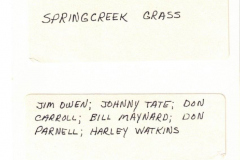 SPRINGCREEK GRASS
JIM OWEN; JOHNNY TATE; DON
CARROLL; BILL MAYNARD; DON
PARNELL; HARLEY WATKINS